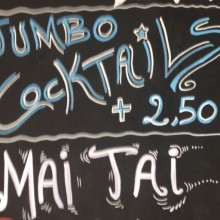 JUMBO
COCKTAILS
+ 2,50
MAI TAI